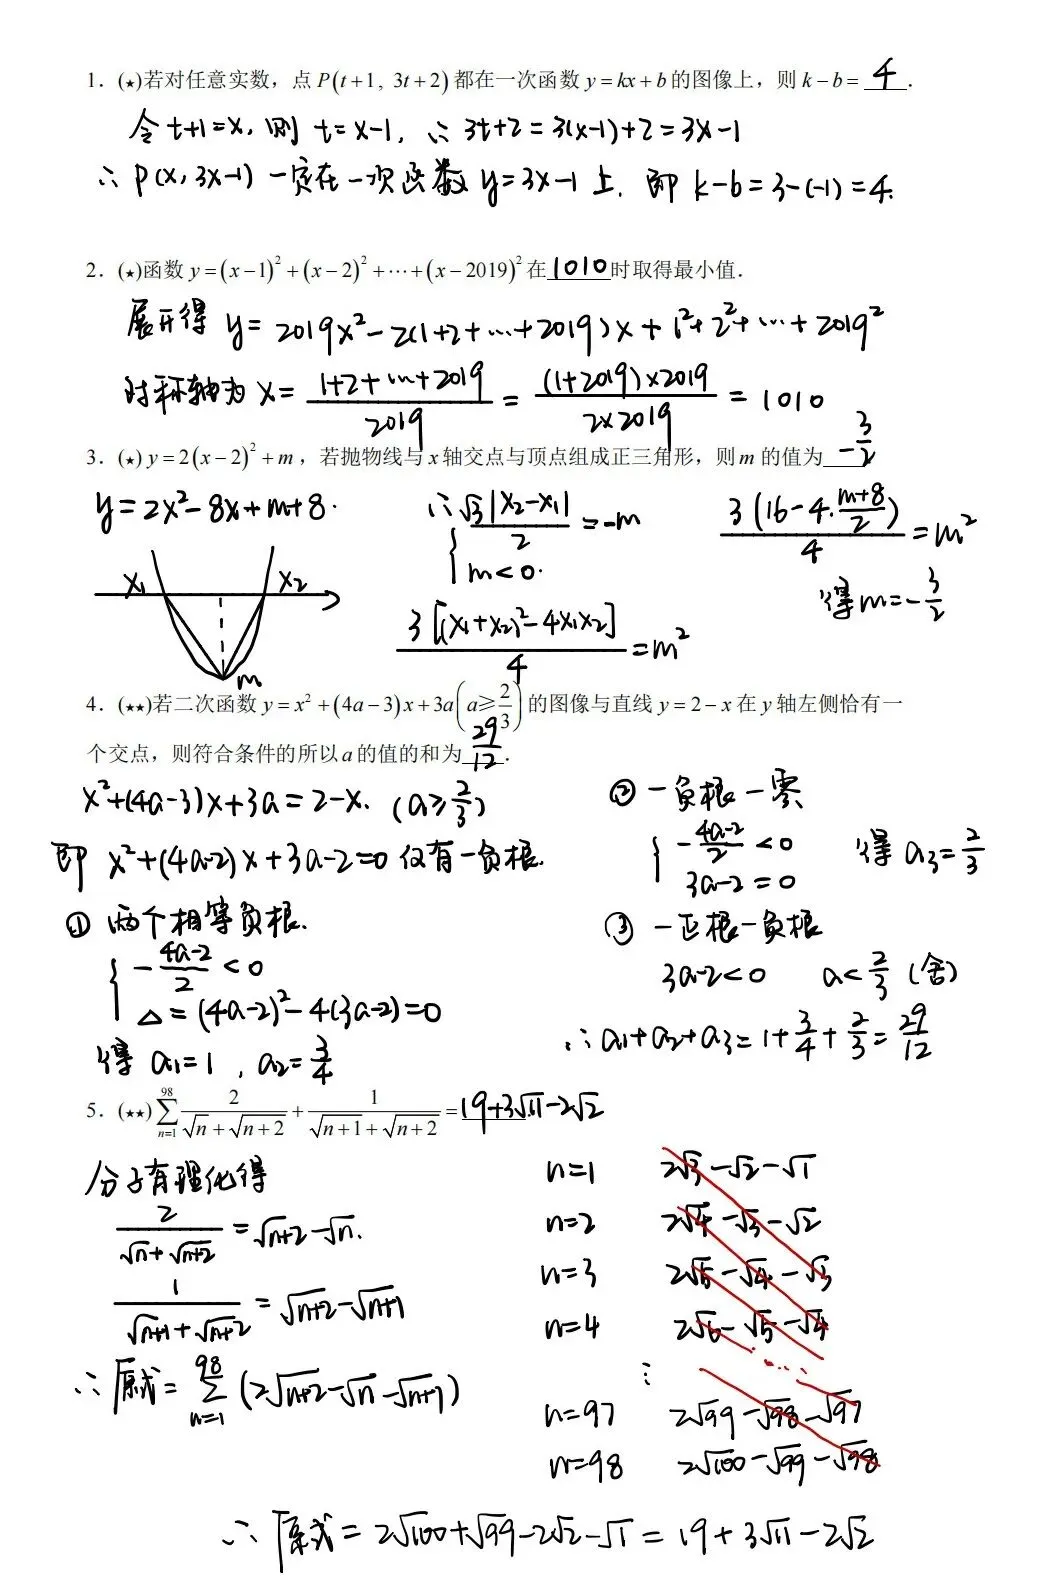 1．(★)若对任意实数，点 P(t+1, 3t+2) 都在一次函数 y=kx+b 的图像上，则 k−b= 4 ．
令 t+1=x, 则 t=x-1, ∴ 3t+2=3(x-1)+2=3x-1
∴ P(x, 3x-1) 一定在一次函数 y=3x-1 上. 即 k-b=3-(-1)=4.
2．(★)函数 y=(x−1)²+(x−2)²+⋯+(x−2019)² 在 1010 时取得最小值．
展开得 y= 2019x²-2(1+2+…+2019)x+1²+2²+…+2019²
对称轴为 x= (1+2+…+2019)/2019 = ((1+2019)×2019)/(2×2019) = 1010
3．(★) y=2(x−2)²+m ，若抛物线与 x 轴交点与顶点组成正三角形，则 m 的值为 -3/2
y=2x²-8x+m+8.
x₁ x₂
m
∴ √3|x₂-x₁|/2 =-m
m<0.
3[(x₁+x₂)²-4x₁x₂]/4 =m²
3(16-4·(m+8)/2)/4 =m²
得 m=-3/2
4．(★★)若二次函数 y=x²+(4a−3)x+3a(a≥2/3) 的图像与直线 y=2−x 在 y 轴左侧恰有一
个交点，则符合条件的所以 a 的值的和为 29/12 ．
x²+(4a-3)x+3a=2-x. (a≥2/3)
即 x²+(4a-2)x+3a-2=0 仅有一负根.
① 两个相等负根.
-(4a-2)/2 <0
△=(4a-2)²-4(3a-2)=0
得 a₁=1, a₂=3/4
② 一负根一零
-(4a-2)/2 <0
3a-2=0
得 a₃=2/3
③ 一正根一负根
3a-2<0 a<2/3 (舍)
∴ a₁+a₂+a₃=1+3/4+2/3=29/12
5．(★★) ∑_{n=1}^{98} 2/(√n+√(n+2)) + 1/(√(n+1)+√(n+2)) = 19+3√11-2√2
分子有理化得
2/(√n+√(n+2)) =√(n+2)-√n.
1/(√(n+1)+√(n+2)) =√(n+2)-√(n+1)
∴ 原式= ∑_{n=1}^{98} (2√(n+2)-√n-√(n+1))
n=1 2√3-√2-√1
n=2 2√4-√3-√2
n=3 2√5-√4-√3
n=4 2√6-√5-√4
⋮ …
n=97 2√99-√98-√97
n=98 2√100-√99-√98
∴ 原式= 2√100+√99-2√2-√1 = 19+3√11-2√2